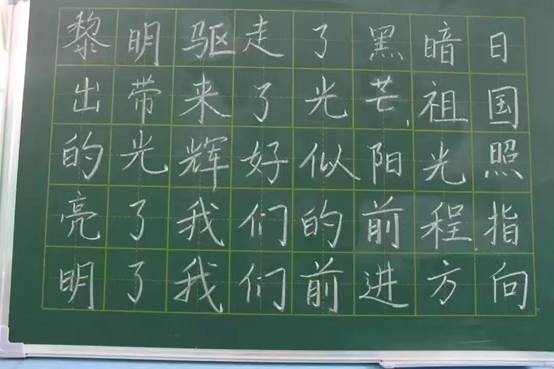 黎明驱走了黑暗日
出带来了光芒,祖国
的光辉好似阳光照
亮了我们的前程指
明了我们前进方向